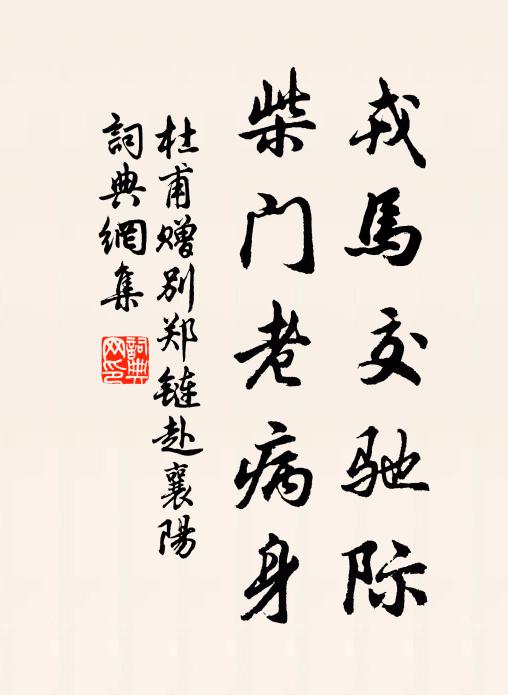 戎馬交馳际
柴门老病身
杜甫赠别郑链赴襄陽
詞典網集
詞典網印